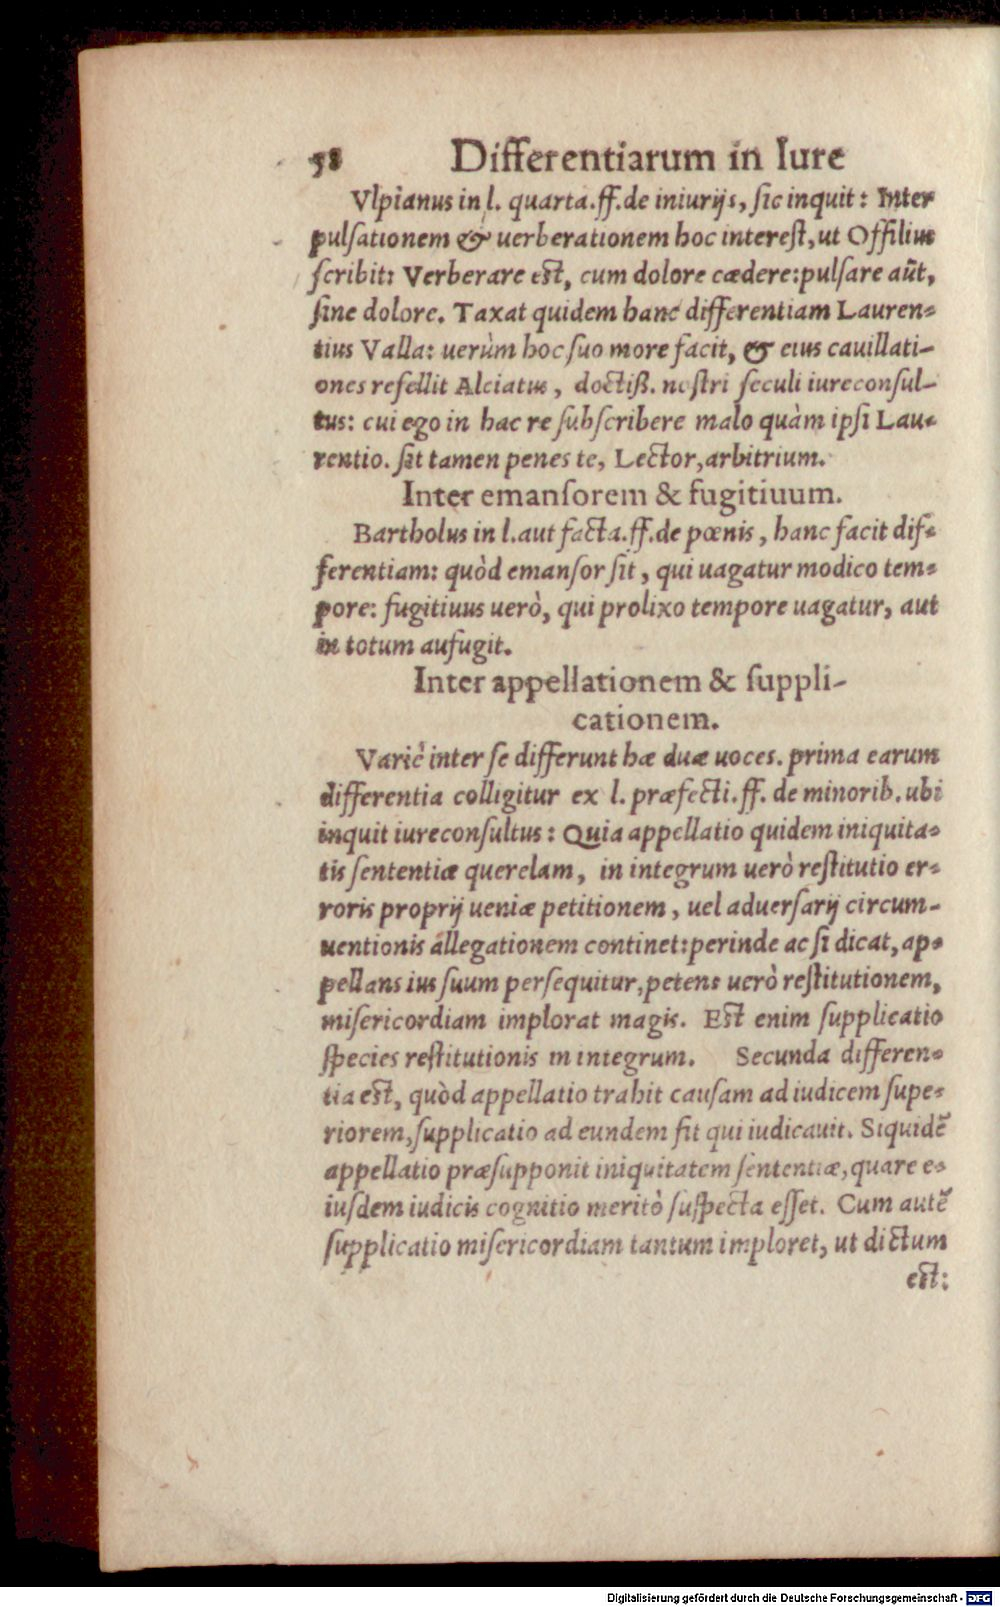 58 Differentiarum in Iure
Vlpianus in l. quarta.ff.de iniurijs, sic inquit: Inter
pulsationem & uerberationem hoc interest, ut Offilius
scribit: Verberare est, cum dolore cædere: pulsare aũt,
sine dolore. Taxat quidem hanc differentiam Lauren-
tius Valla: uerùm hoc suo more facit, & eius cauillati-
ones refellit Alciatus, doctiß. nostri seculi iureconsul-
tus: cui ego in hac re subscribere malo quàm ipsi Lau-
rentio. sit tamen penes te, Lector, arbitrium.
Inter emansorem & fugitiuum.
Bartholus in l.aut facta.ff.de pœnis, hanc facit dif-
ferentiam: quòd emansor sit, qui uagatur modico tem-
pore: fugitiuus uerò, qui prolixo tempore uagatur, aut
in totum aufugit.
Inter appellationem & suppli-
cationem.
Variè inter se differunt hæ duæ uoces. prima earum
differentia colligitur ex l. præfecti.ff. de minorib. ubi
inquit iureconsultus: Quia appellatio quidem iniquita-
tis sententiæ querelam, in integrum uerò restitutio er-
roris proprij ueniæ petitionem, uel aduersarij circum-
uentionis allegationem continet: perinde ac si dicat, ap-
pellans ius suum persequitur, petens uerò restitutionem,
misericordiam implorat magis. Est enim supplicatio
species restitutionis in integrum. Secunda differen-
tia est, quòd appellatio trahit causam ad iudicem supe-
riorem, supplicatio ad eundem fit qui iudicauit. Siquidẽ
appellatio præsupponit iniquitatem sententiæ, quare e-
iusdem iudicis cognitio meritò suspecta esset. Cum autẽ
supplicatio misericordiam tantum imploret, ut dictum
est:
Digitalisierung gefördert durch die Deutsche Forschungsgemeinschaft - DFG